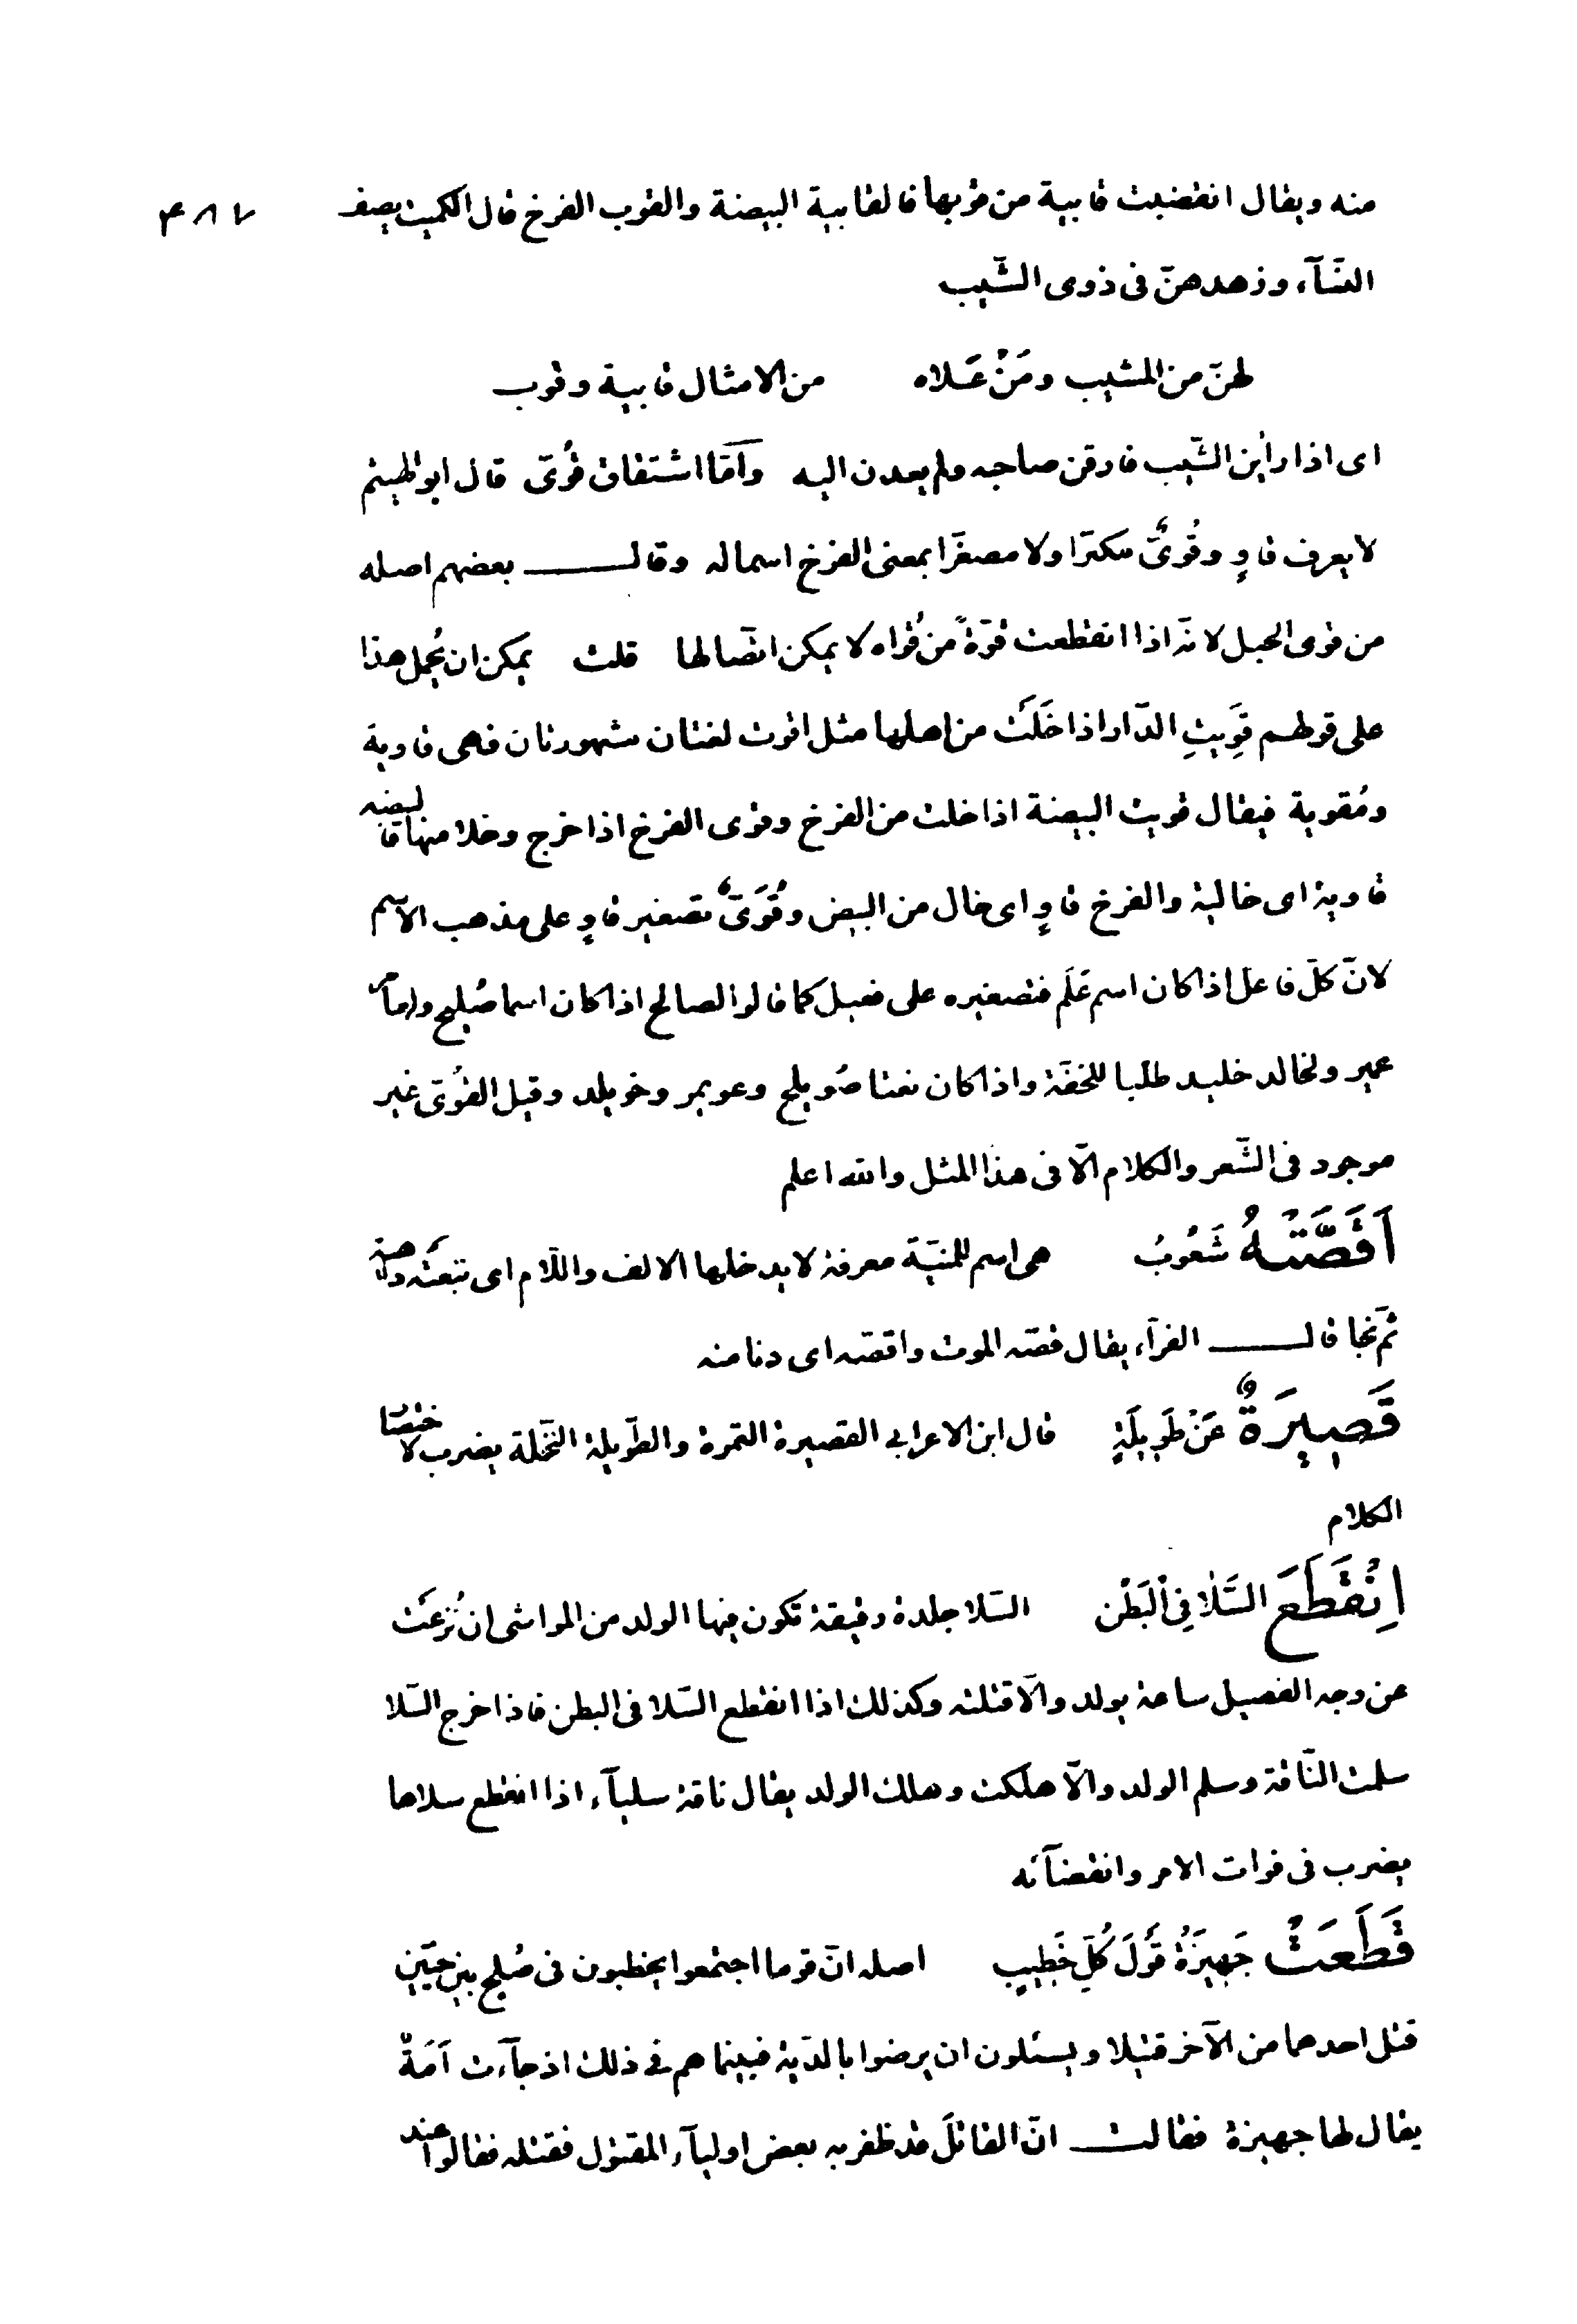 ۴۸۷
منه ويقال انقضبت قابية من قوبها فالقابية البيضة والقوب الفرخ قال الكميت يصف
النّسآء وزهدهنّ فى ذوى الشّيب
لهنّ من المشيب ومَنْ عَلاه من الامثال قابية وقوب
اى اذا راين الشّيب فارقن صاحبه ولم يعدن اليه وَاَمّا اشتقاق قُوىّ قال ابو الهيثم
لا يعرف قاوٍ وقُوىٌّ مكبّرا ولا مصغّرا بمعنى الفرخ اسما له وقال بعضهم اصله
من قوى الحبل لانّه اذا انقطعت قوّةٌ من قُواه لا يمكن اتّصالها قلت يمكن ان يُحمل هذا
على قولهم قَوِيَتِ الدّار اذا خَلَتْ من اهلها مثل اقوت لغتان مشهورتان فهى قاوية
ومُقوية فيقال قويت البيضة اذا خلت من الفرخ وقوى الفرخ اذا خرج وخلا منها فالبيضة
قاوية اى خالية والفرخ قاوٍ اى خال من البيض وقُوَىٌّ تصغير قاوٍ على مذهب الاسم
لانّ كلّ فاعل اذا كان اسم عَلَم فتصغيره على فعيل كما قالوا لصالح اذا كان اسما صُليح ولعامر
عمير ولخالد خليد طلبا للخفّة واذا كان نعتا صُويلح وعويمر وخويلد وقيل القُوىّ غير
موجود فى الشّعر والكلام الّا فى هذا المثل والله اعلم
اَقَصَّتْهُ شَعُوبُ هى اسم للمنيّة معرفة لا يدخلها الالف واللّام اى تبعته داهية
ثمّ نجا قال الفرّآء يقال قصّه الموت واقصّه اى دنا منه
قَصِيرَةٌ عَنْ طَوِيلَةٍ قال ابن الاعرابى القصيرة التّمرة والطّويلة النّخلة يضرب لاختصار
الكلام
اِنْقَطَعَ السَّلَا فِى الْبَطْنِ السّلا جلدة رقيقة تكون فيها الولد من المواشى ان نُزِعَتْ
عن وجه الفصيل ساعة يولد والّا قتلته وكذلك اذا انقطع السّلا فى البطن فاذا خرج السّلا
سلمت النّاقة وسلم الولد والّا هلكت وهلك الولد يقال ناقة سليآء اذا انقطع سلاها
يضرب فى فوات الامر وانقضآئه
قَطَعَتْ جَهِيزَةُ قَوْلَ كُلِّ خَطِيبٍ اصله انّ قوما اجتمعوا يخطبون فى صُلح بين حيّين
قتل احدهما من الآخر قتيلا ويسئلون ان يرضوا بالدّية فبينما هم فى ذلك اذ جآءت اَمَةٌ
يقال لها جهيزة فقالت انّ القاتلَ قد ظفر به بعض اوليآء المقتول فقتله فقالوا عند